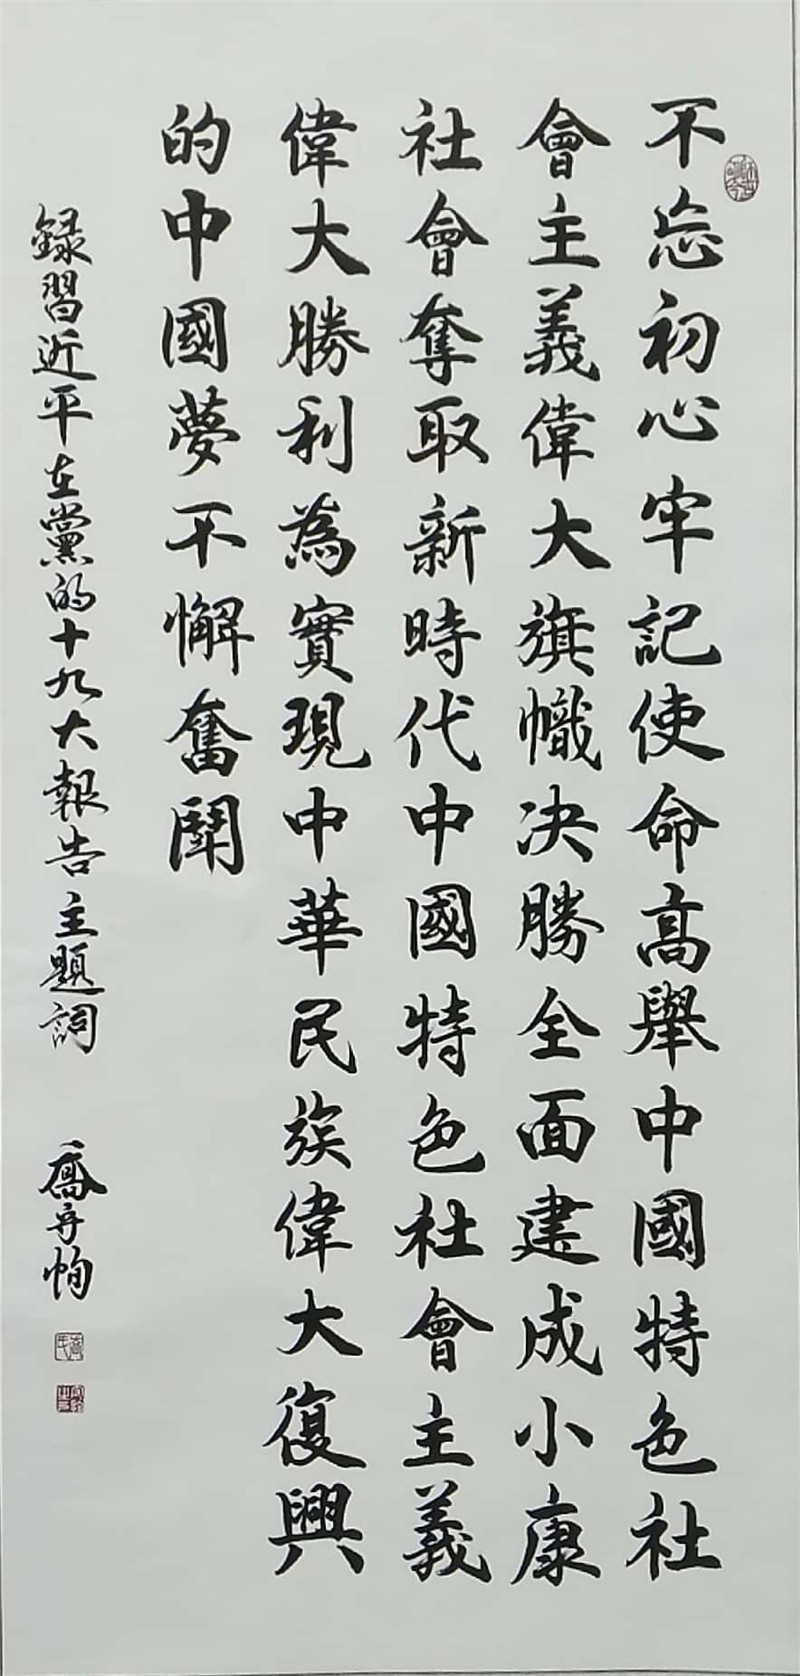 不忘初心牢記使命高舉中國特色社
會主義偉大旗幟决勝全面建成小康
社會奪取新時代中國特色社會主義
偉大勝利為實現中華民族偉大復興
的中國夢不懈奮鬪
録習近平在黨的十九大報告主題詞
喬守恂